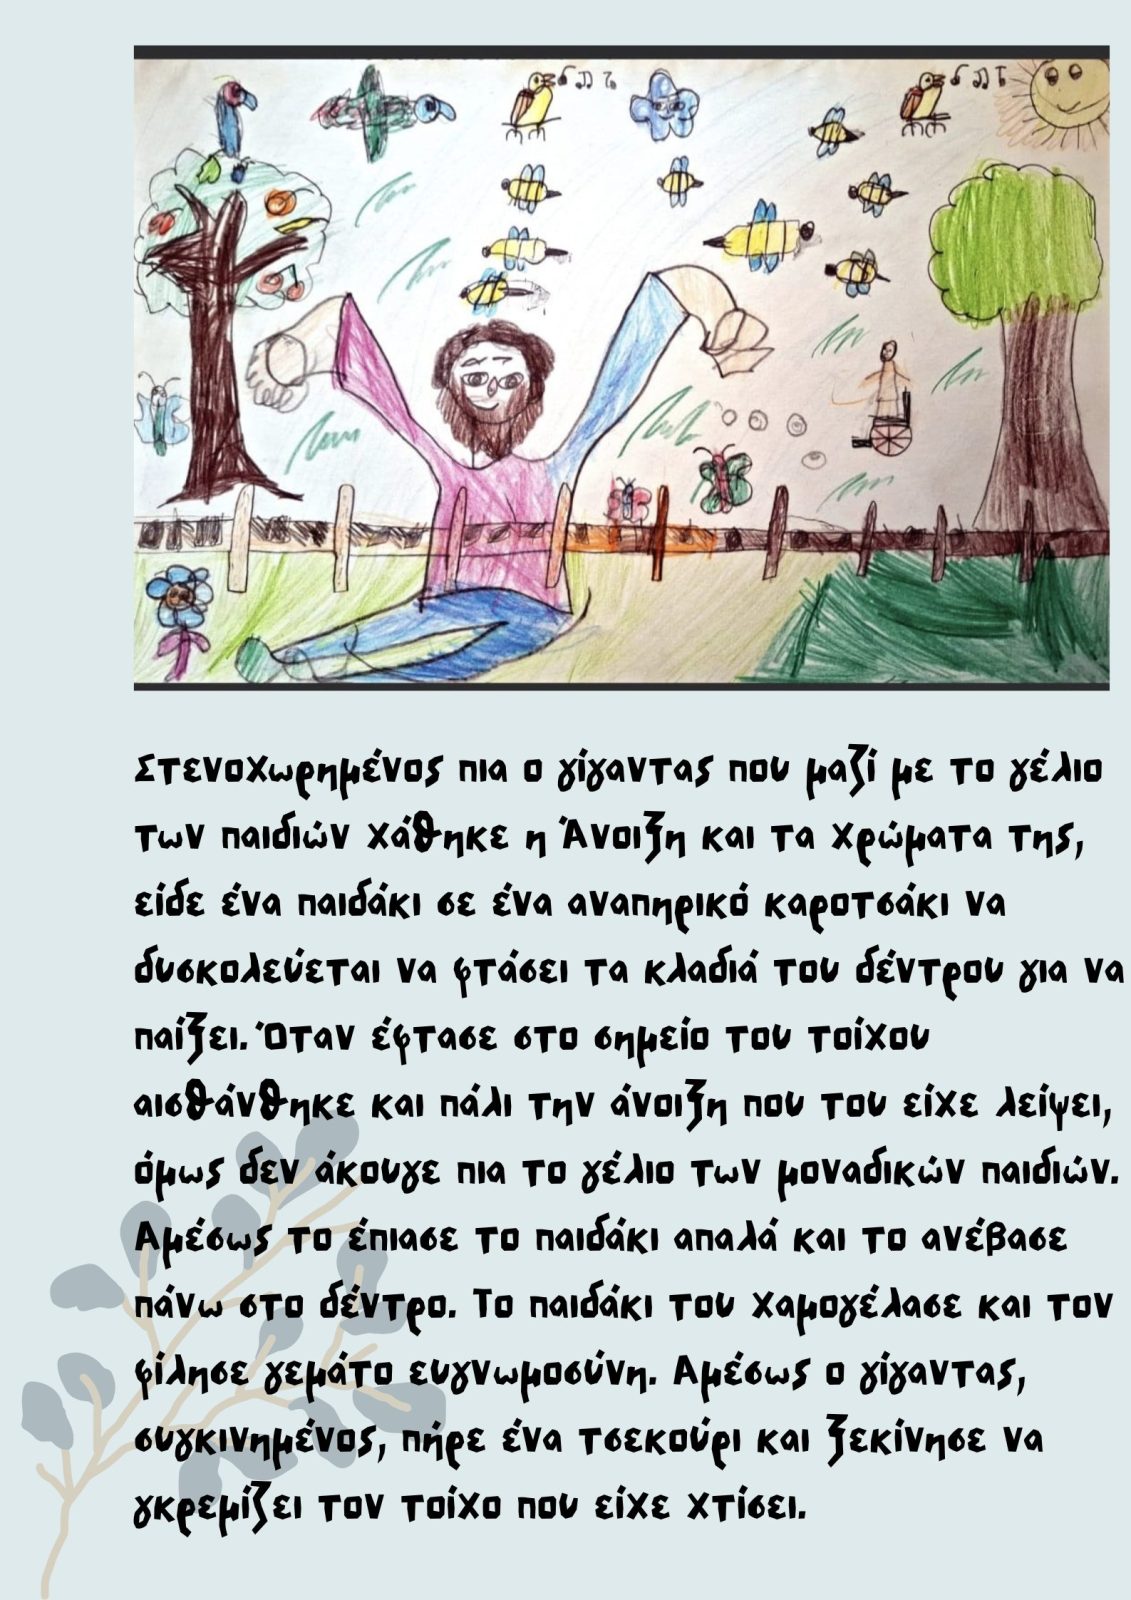 Στενοχωρημένος πια ο γίγαντας που μαζί με το γέλιο
των παιδιών χάθηκε η Άνοιξη και τα χρώματα της,
είδε ένα παιδάκι σε ένα αναπηρικό καροτσάκι να
δυσκολεύεται να φτάσει τα κλαδιά του δέντρου για να
παίξει. Όταν έφτασε στο σημείο του τοίχου
αισθάνθηκε και πάλι την άνοιξη που του είχε λείψει,
όμως δεν άκουγε πια το γέλιο των μοναδικών παιδιών.
Αμέσως το έπιασε το παιδάκι απαλά και το ανέβασε
πάνω στο δέντρο. Το παιδάκι του χαμογέλασε και τον
φίλησε γεμάτο ευγνωμοσύνη. Αμέσως ο γίγαντας,
συγκινημένος, πήρε ένα τσεκούρι και ξεκίνησε να
γκρεμίζει τον τοίχο που είχε χτίσει.